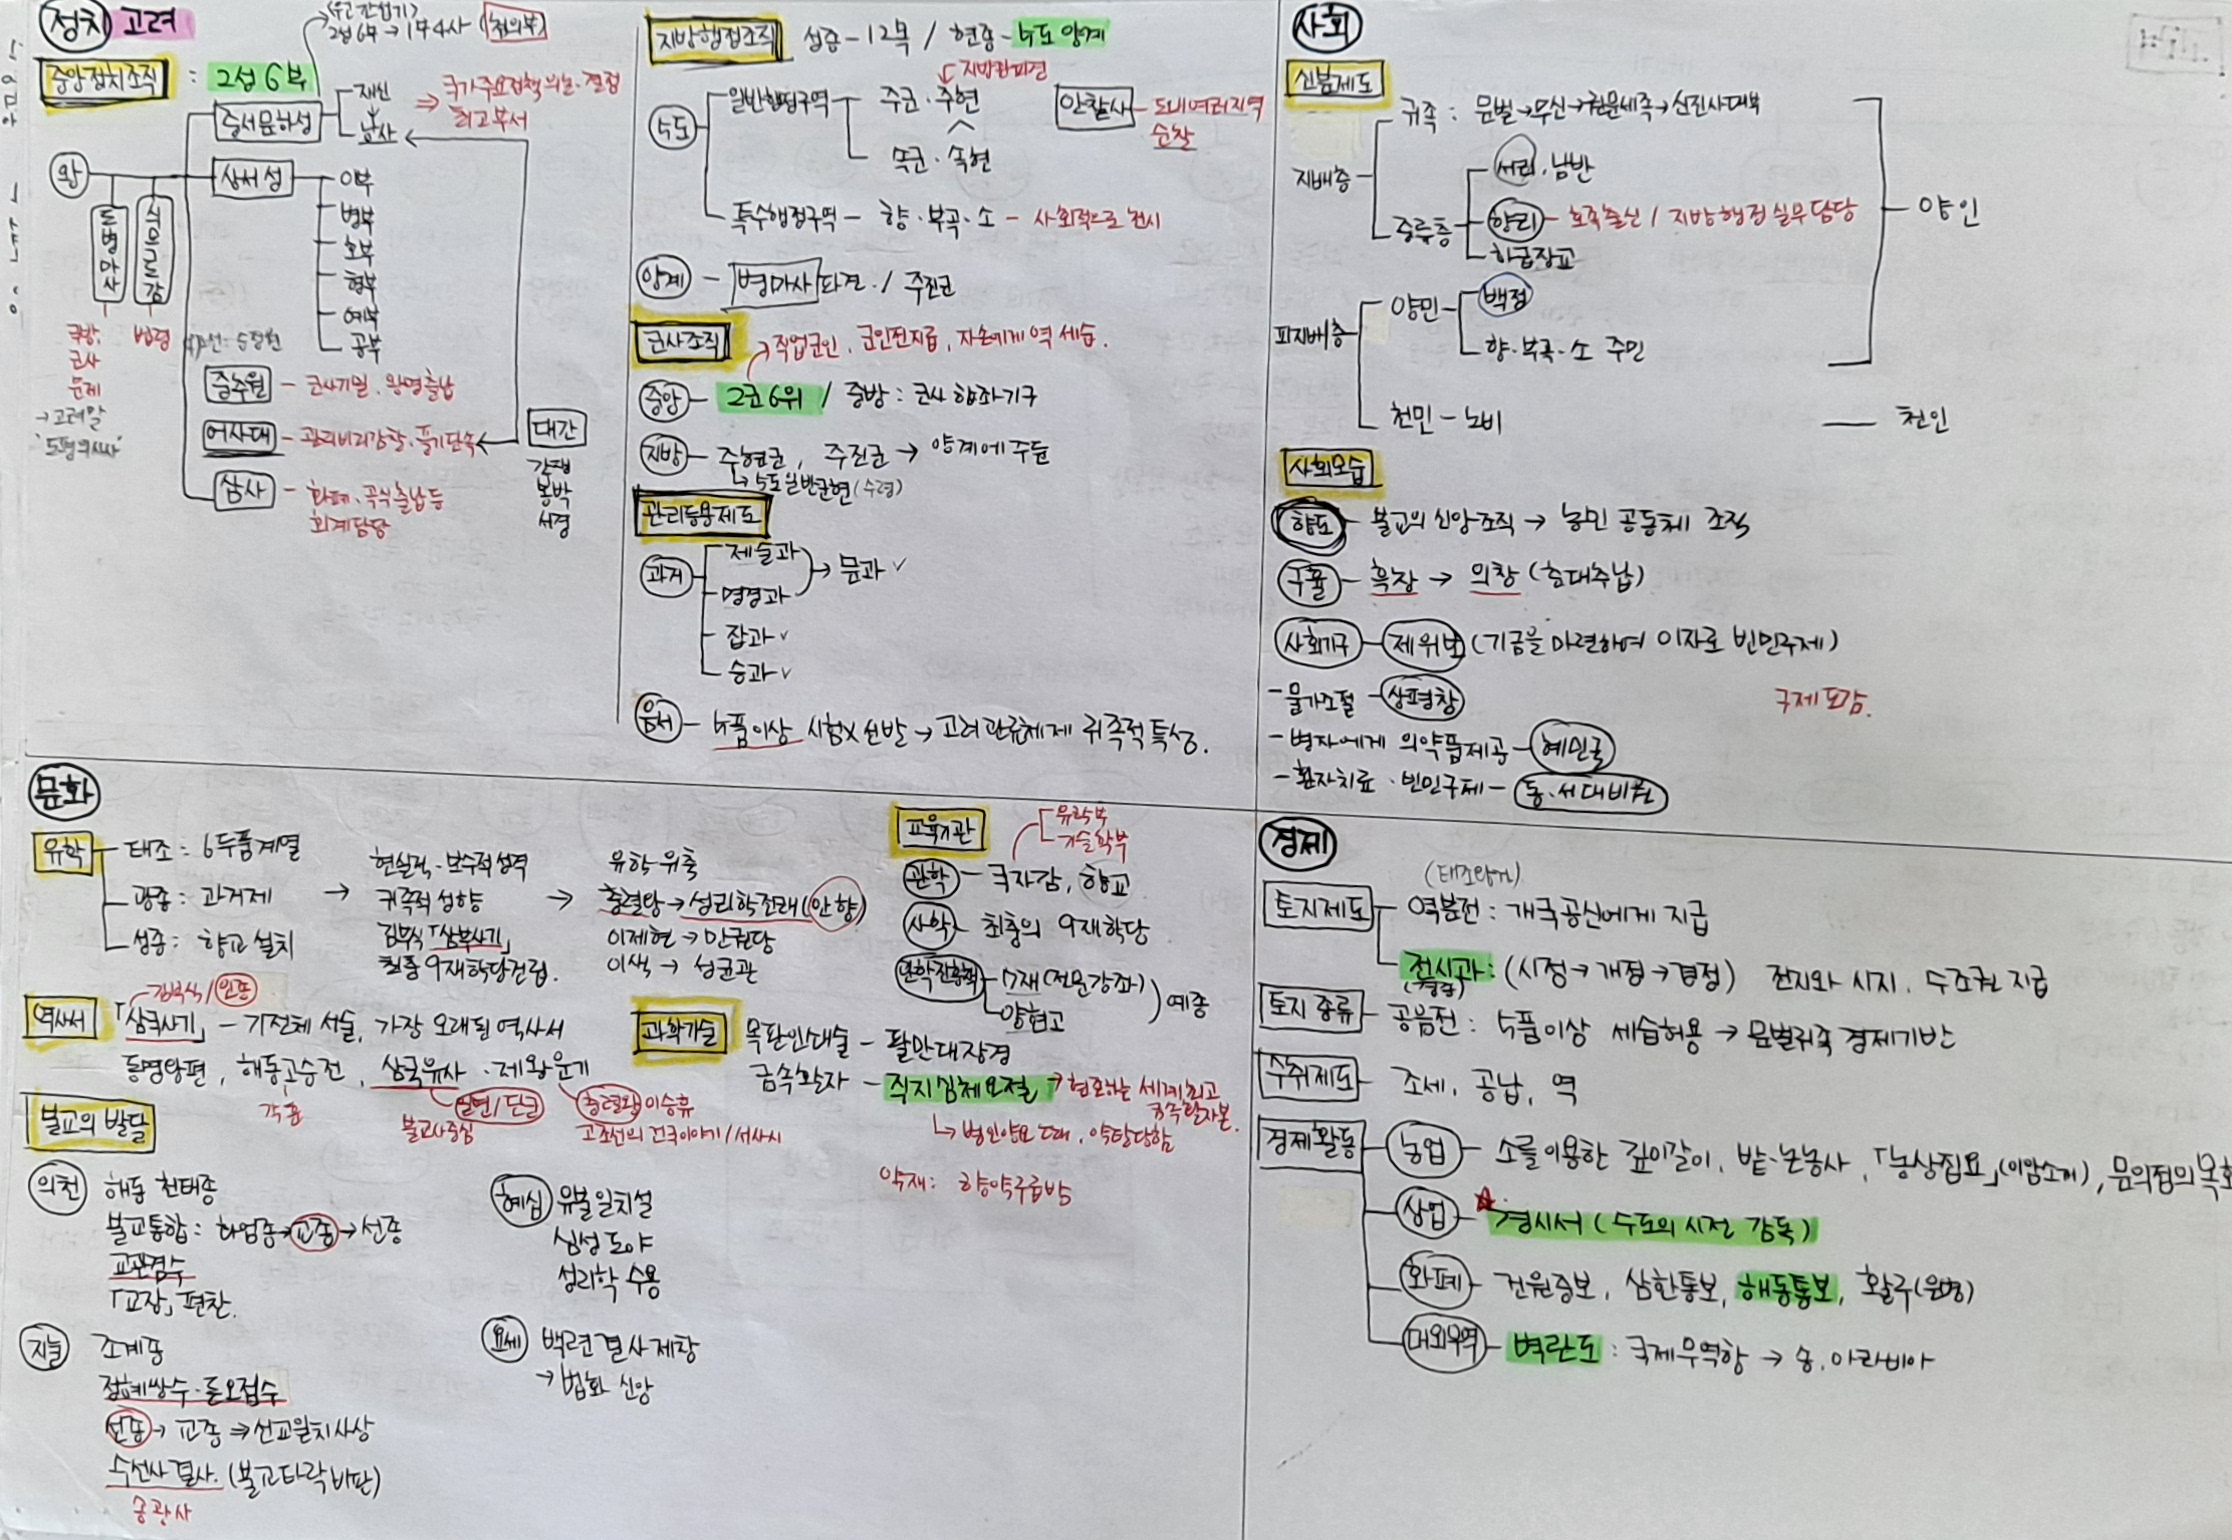 정치 고려
(원 간섭기)
2성 6부 → 1부 4사 (첨의부)
중앙정치조직 : 2성 6부
중서문하성
재신
낭사
⇒ 국가주요정책 의논·결정
최고부서
왕
도병마사
식목도감
상서성
이부
병부
호부
형부
예부
공부
국방,
군사
문제
→ 고려말
'도평의사사'
법령
중추원 - 군사기밀, 왕명출납
어사대 - 관리비리감찰·풍기단속
삼사 - 화폐·곡식출납 등
회계담당
대간
간쟁
봉박
서경
지방행정조직 성종-12목 / 현종-5도 양계
5도
일반행정구역
지방관파견
주군·주현
속군·속현
안찰사 - 도내 여러지역
순찰
특수행정구역 - 향·부곡·소 - 사회적으로 천시
양계 - 병마사 파견 / 주진군
군사조직
→ 직업군인, 군인전지급, 자손에게 역 세습.
중앙 - 2군 6위 / 중방 : 군사 합좌기구
지방 - 주현군, 주진군 → 양계에 주둔
↳ 5도 일반군현 (수령)
관리등용제도
과거
제술과
명경과
→ 문과 ✓
잡과 ✓
승과 ✓
음서 - 5품이상 시험X 선발 → 고려 관료체제 귀족적 특성.
사회
신분제도
지배층
귀족 : 문벌→무신→권문세족→신진사대부
중류층
서리, 남반
향리 - 호족출신 / 지방행정 실무담당
하급장교
양인
피지배층
양민
백정
향·부곡·소 주민
천민 - 노비 — 천인
사회모습
향도 - 불교의 신앙조직 → 농민 공동체 조직
구휼 - 흑창 → 의창 (춘대추납)
사회기구 - 제위보 (기금을 마련하여 이자로 빈민구제)
구제도감.
- 물가조절 - 상평창
- 병자에게 의약품제공 - 혜민국
- 환자치료·빈민구제 - 동·서대비원
문화
유학
태조 : 6두품계열
광종 : 과거제
성종 : 향교 설치
→ 현실적·보수적 성격
귀족적 성향
김부식 「삼국사기」
최충 9재학당건립.
→ 유학 위축
충렬왕 → 성리학전래 (안향)
이제현 → 만권당
이색 → 성균관
김부식 / 인종
역사서 「삼국사기」 - 기전체 서술, 가장 오래된 역사서
동명왕편, 해동고승전, 삼국유사 · 제왕운기
각훈
일연/단군
불교사중심
충렬왕 이승휴
고조선의 건국이야기 / 서사시
불교의 발달
의천 해동 천태종
불교통합 : 화엄종→교종→선종
교관겸수
「교장」 편찬.
지눌 조계종
정혜쌍수·돈오점수
선종 → 교종 ⇒ 선교일치사상
수선사 결사. (불교타락비판)
송광사
혜심 유불일치설
심성 도야
성리학 수용
요세 백련결사 제창
→ 법화 신앙
교육기관
유학부
기술학부
관학 - 국자감, 향교
사학 - 최충의 9재학당
관학진흥책 - 7재 (전문강좌)
양현고
예종
과학기술 목판인쇄술 - 팔만대장경
금속활자 - 직지심체요절 → 현존하는 세계최고
금속활자본.
↳ 병인양요 때, 약탈당함
약재 : 향약구급방
경제
(태조왕건)
토지제도 - 역분전 : 개국공신에게 지급
전시과 : (시정→개정→경정) 전지와 시지, 수조권 지급
(경종)
토지종류 - 공음전 : 5품이상 세습허용 → 문벌귀족 경제기반
수취제도 - 조세, 공납, 역
경제활동
농업 - 소를 이용한 깊이갈이, 밭·논농사, 「농상집요」(이암소개), 문익점의 목화
상업 - 경시서 (수도의 시전 감독)
화폐 - 건원중보, 삼한통보, 해동통보, 활구(은병)
대외무역 - 벽란도 : 국제무역항 → 송, 아라비아